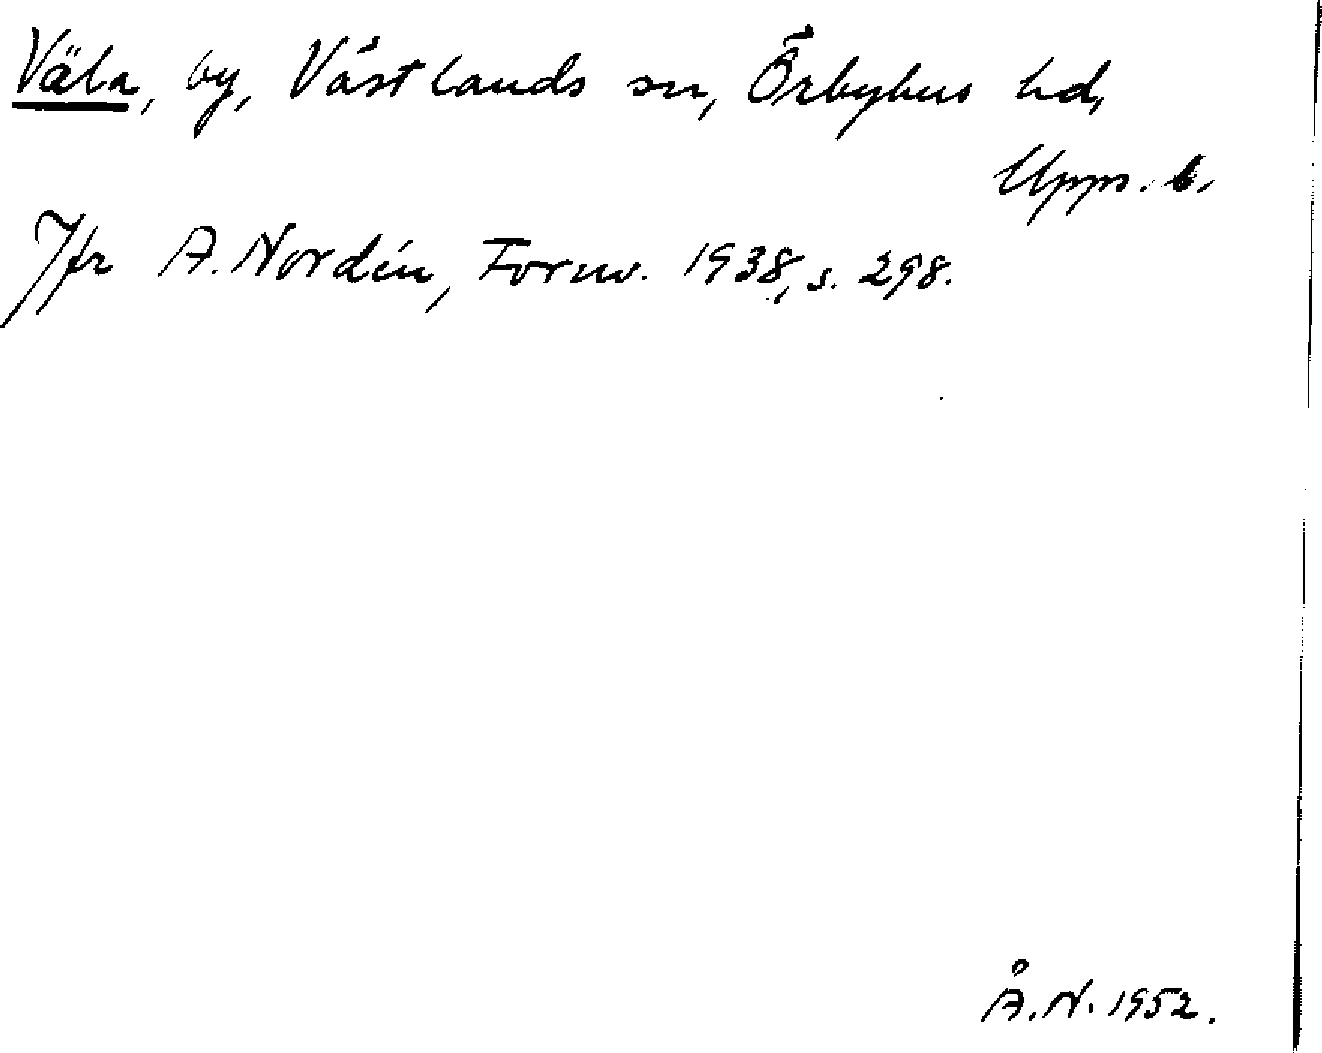 Väla, by, Västlands sn, Örbyhus hd,
Upps. l.
Jfr A. Nordén, Fornv. 1938, s. 298.
Å. N. 1952.